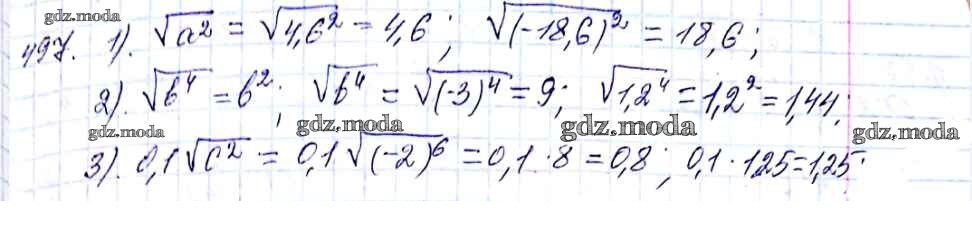 gdz.moda
497. 1). √a² = √4,6² = 4,6; √(-18,6)² = 18,6;
gdz.moda
2). √b⁴ = b²; √b⁴ = √(-3)⁴ = 9; √1,2⁴ = 1,2² = 1,44;
gdz.moda gdz.moda gdz.moda
3). 0,1√c² = 0,1√(-2)⁶ = 0,1 · 8 = 0,8; 0,1 · 125 = 1,25.